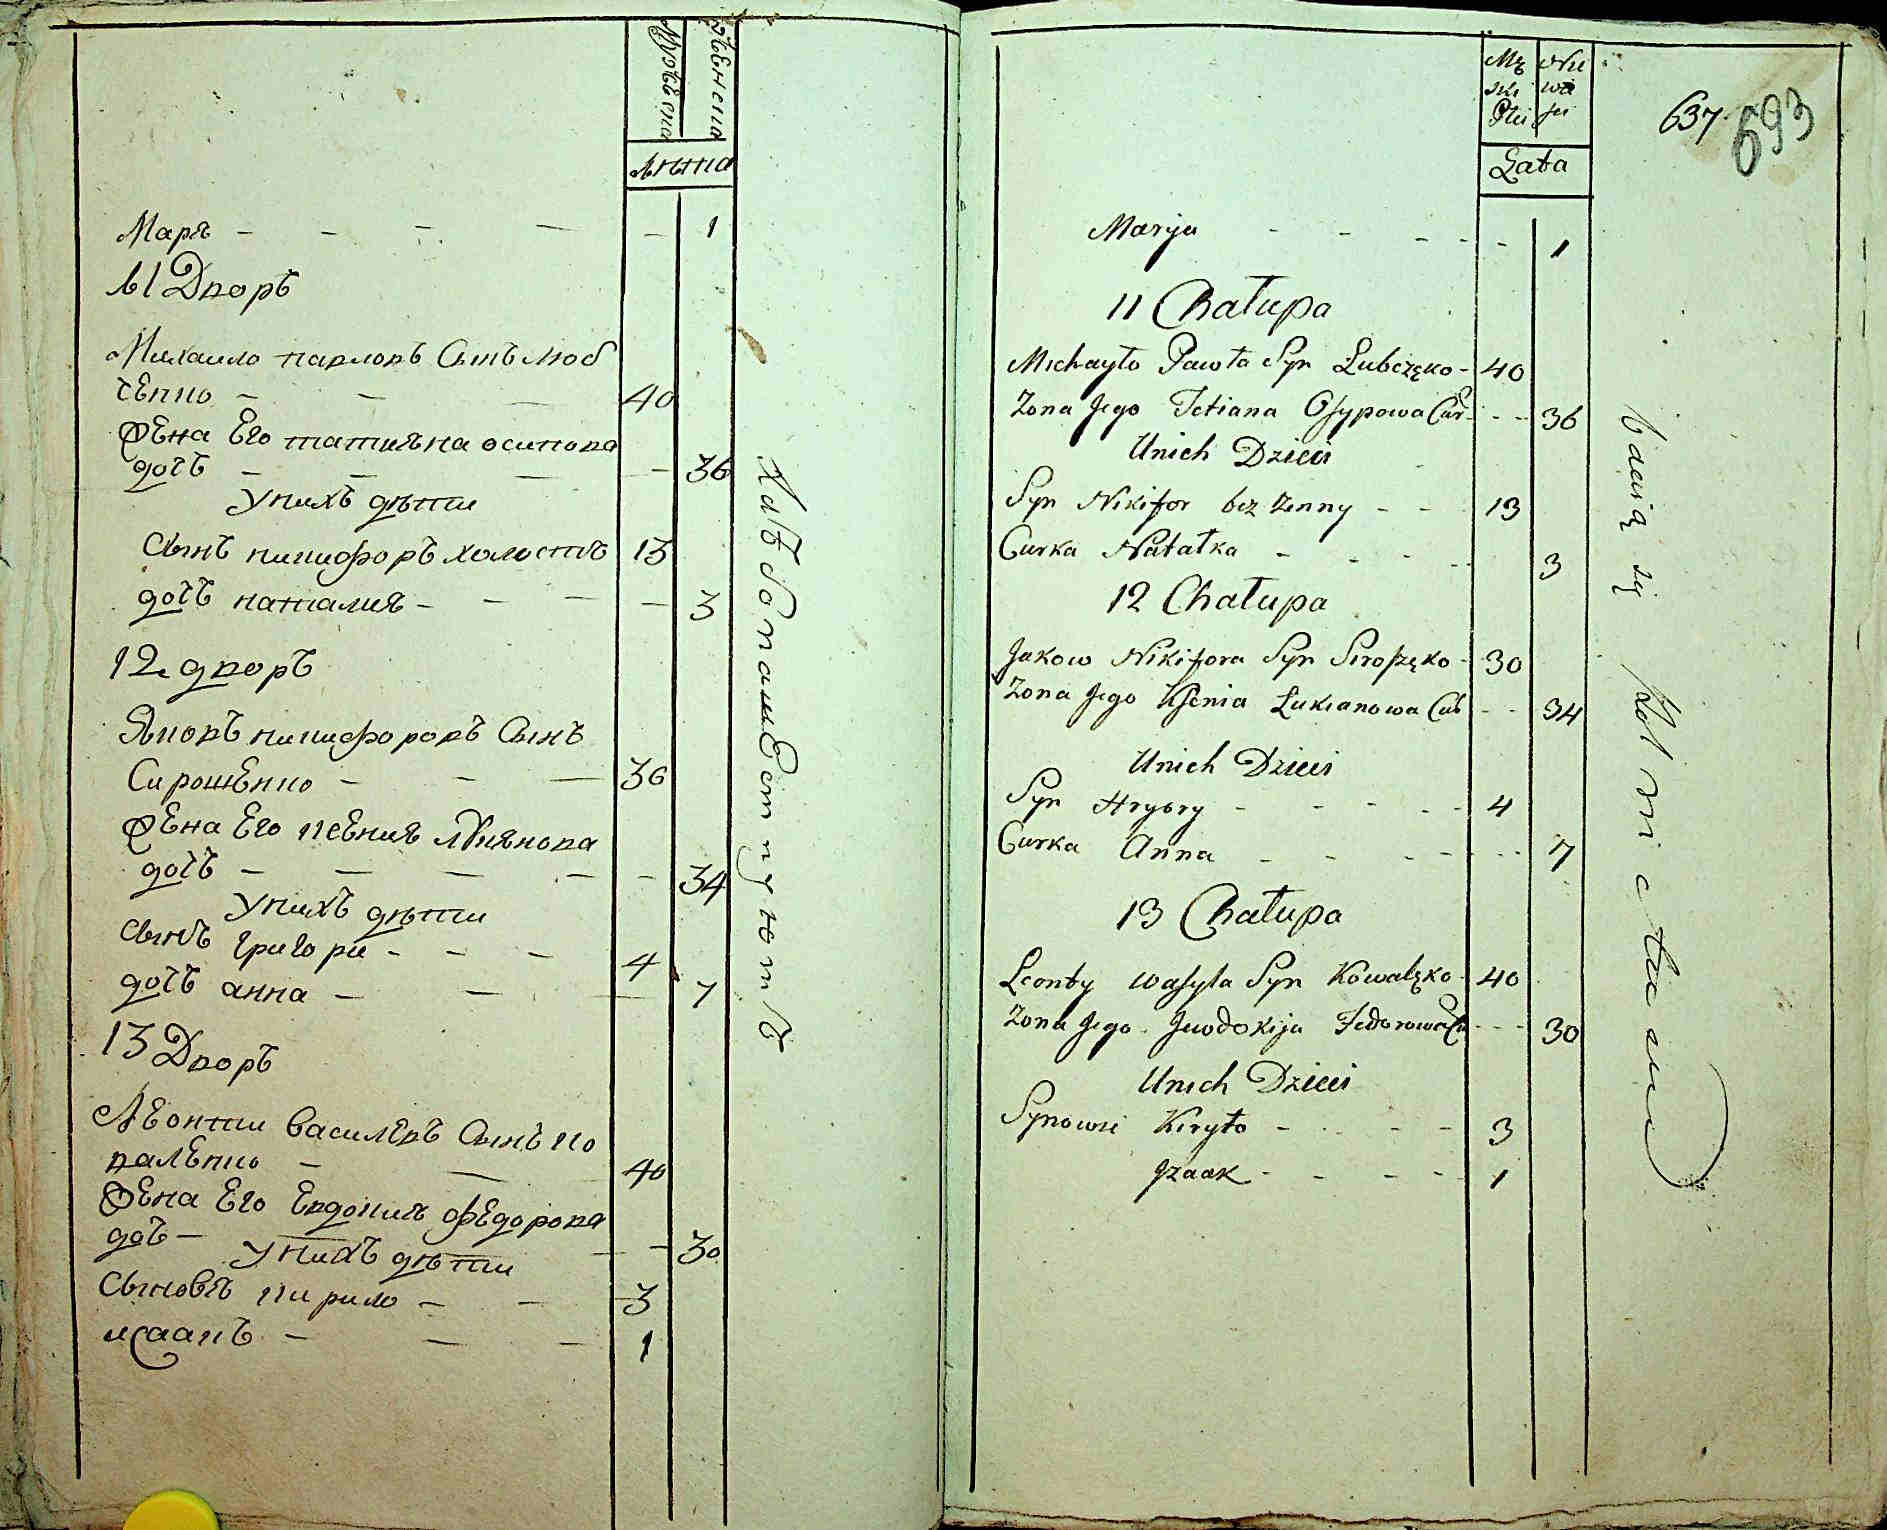 Мужеска
Женска
Лѣта
Маря — — — — — 1
11 Дворъ
Михаило павловъ Сынъ люб
ченко — — — 40
Жена Его татияна осипова
дочъ — — — — 36
У нихъ дѣти
Сынъ никифоръ холостъ 13
дочъ наталия — — — — 3
12 дворъ
Яковъ никифоровъ Сынъ
Сирошенко — — — 36
Жена Его ксения лукянова
дочъ — — — — — 34
У нихъ дѣти
Сынъ григори — — — 4
дочъ анна — — — 7
13 Дворъ
Леонти василевъ Сынъ ко
валенко — — 40
Жена Его Евдокия федорова
дочъ — — — 30
У нихъ дѣти
Сыновъя кирило — — 3
исаакъ — — — 1
Męskiej Płci
Niewiasti
Lata
637.
693
Maryja - - - - - - 1
11 Chałupa
Michayło Pawła Syn Lubczęko - 40
Zona Jego Tetiana Osypowa Cur - - - 36
Unich Dzieci
Syn Nikifor bez żenny - - 13
Curka Natałka - - - - 3
12 Chałupa
Jakow Nikifora Syn Siroszęko - 30
Zona Jego Ksenia Lukianowa Cur - - 34
Unich Dzieci
Syn Hryory - - - - - 4
Curka Anna - - - - - - 7
13 Chałupa
Leonty Wasyla Syn Kowalęko - 40
Zona Jego Jewdokija Fedorowa Cu - - - 30
Unich Dzieci
Synowie Kiryło - - - - 3
Jzaak - - - - 1